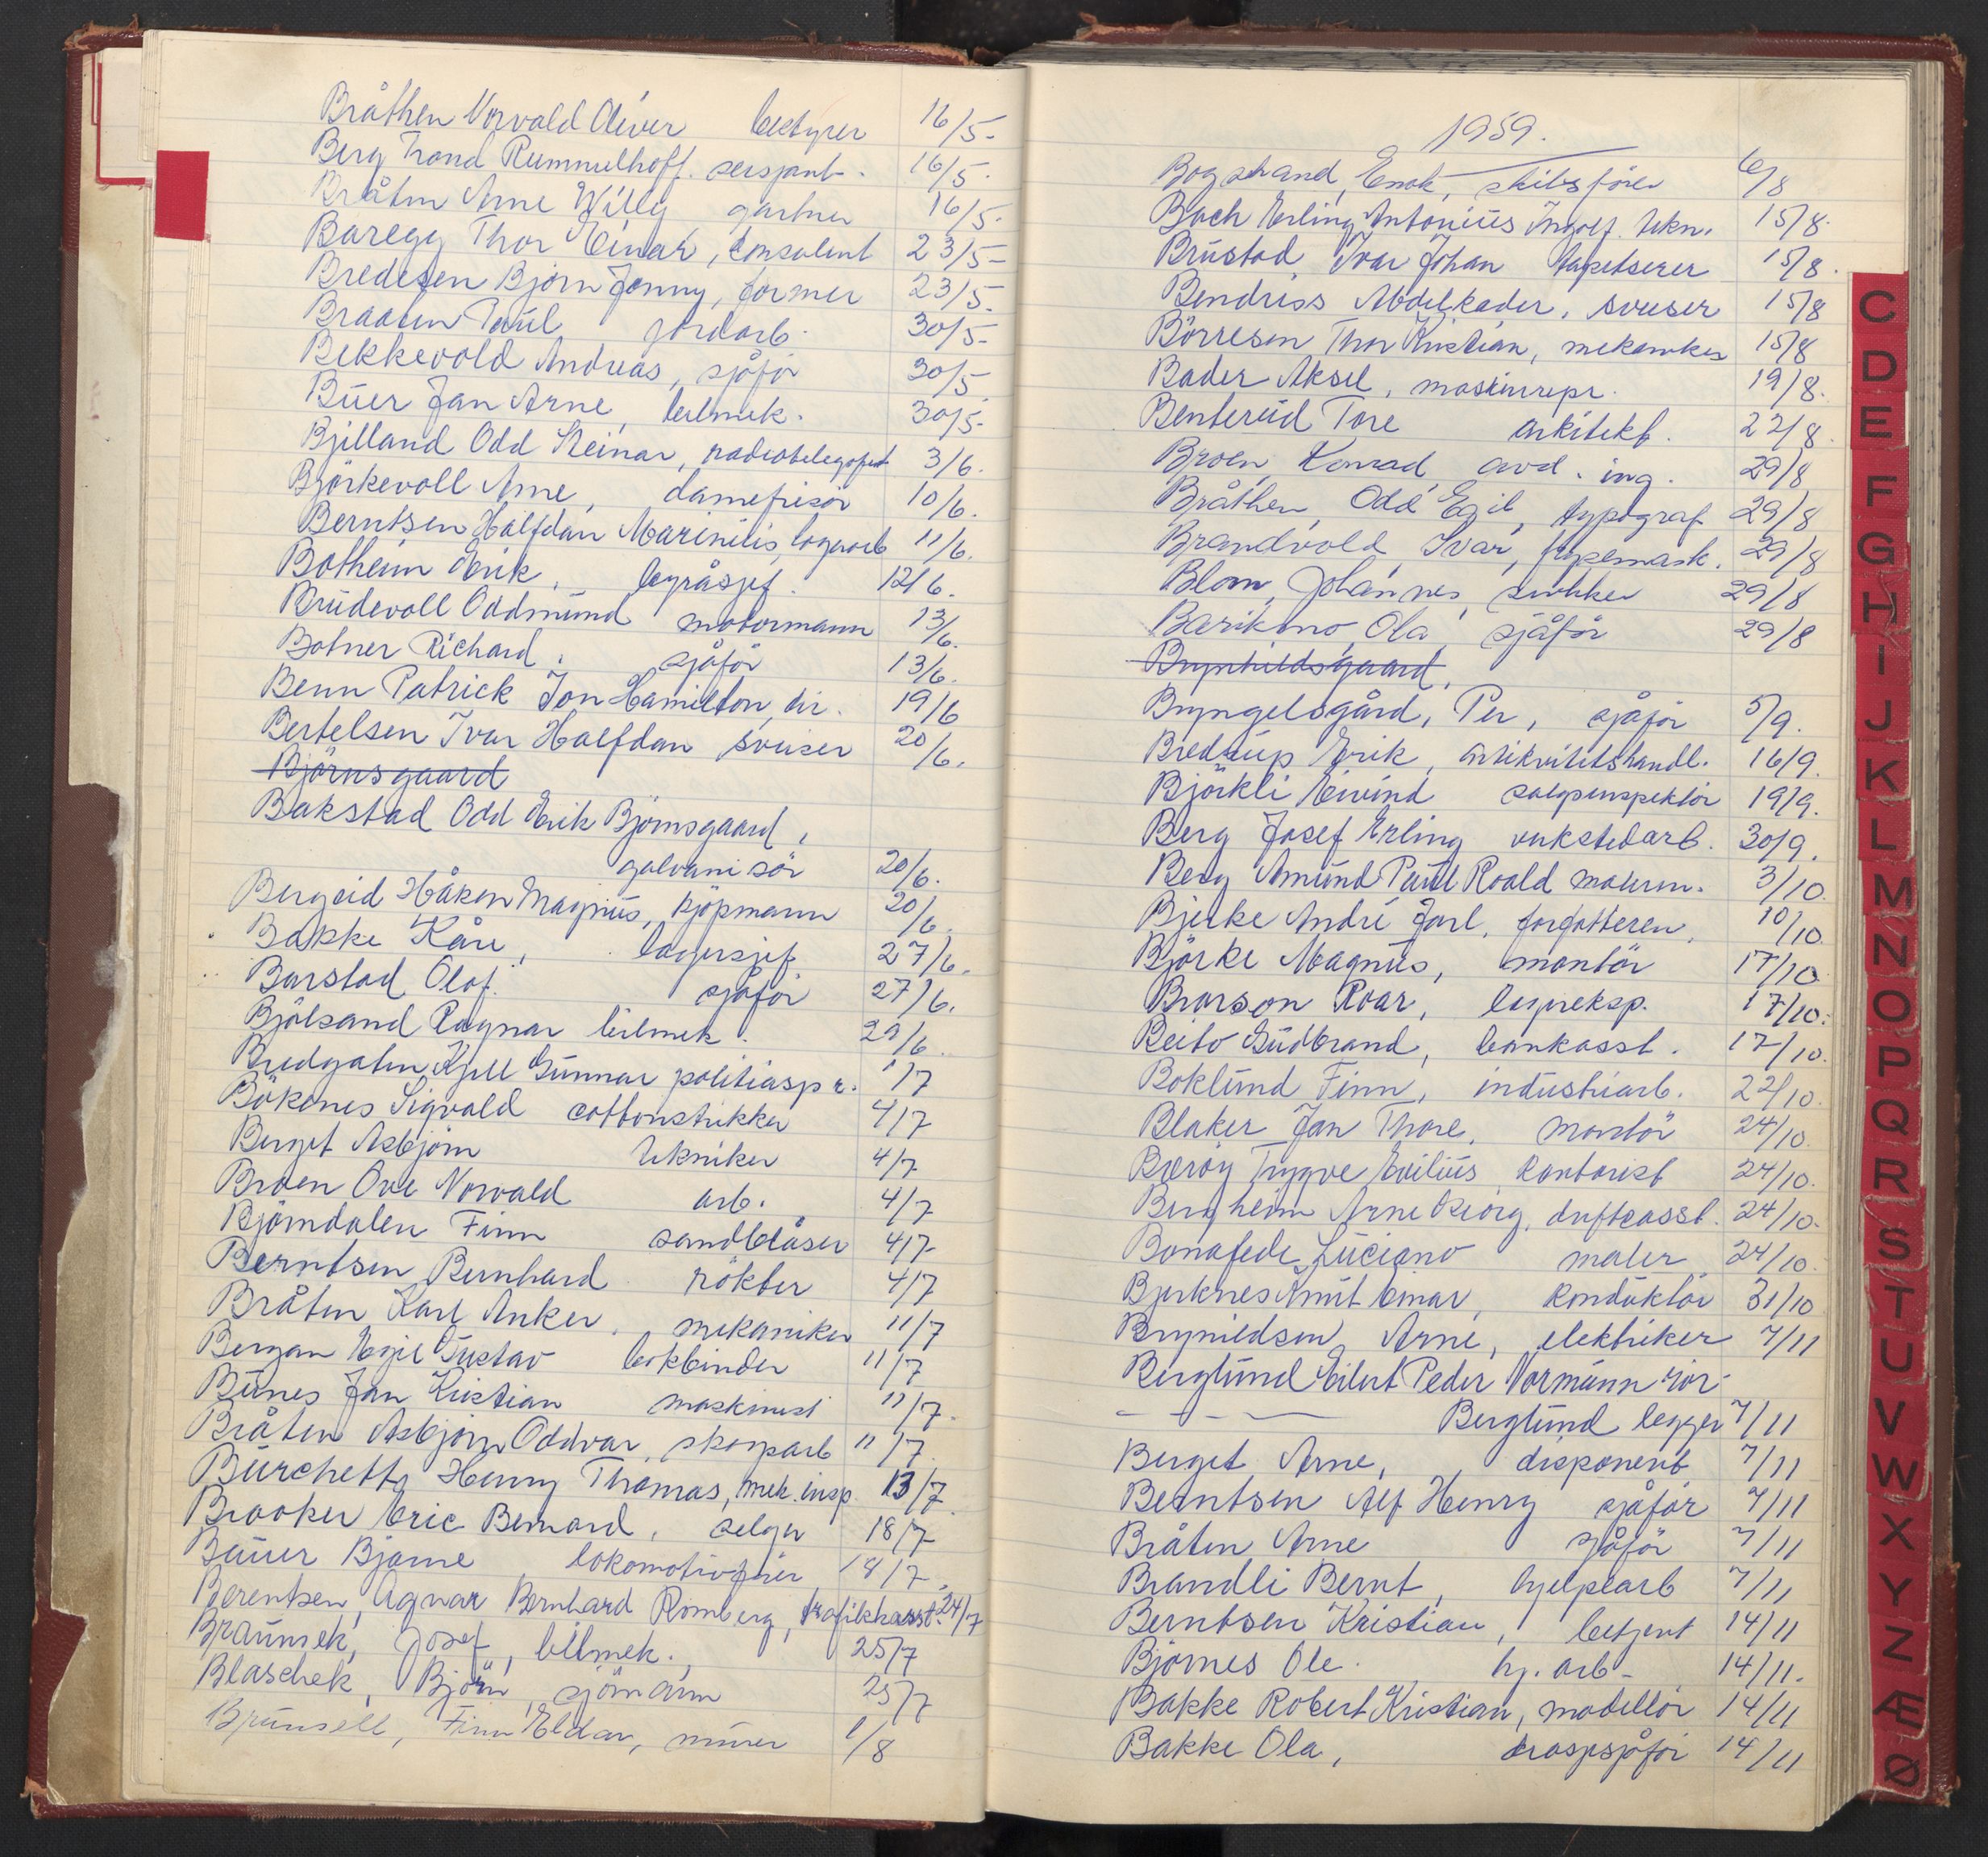 Bråthen Norvald Oliver bestyrer 16/5-
Berg Trond Rummelhoff. sersjant. 16/5.
Bråten Arne Willy gartner 16/5.
Baregg Thor Einar, konsulent 23/5-
Bredesen Bjørn Jonny, former 23/5.
Braaten Paul jordarb. 30/5-
Bekkevold Andreas, sjåför 30/5.
Buer Jan Arne, bilmek. 30/5-
Bjelland Odd Steinar, radiotelegrafist 3/6.
Björkevoll Arne, damefrisör 10/6.
Berntsen Halfdan Marinius, lagerarb 11/6.
Botheim Erik, byråsjef. 12/6.
Brudevoll Oddmund motormann 13/6.
Botner Richard, sjåför 13/6.
Benn Patrick Jon Hamilton, dir. 19/6
Bertelsen Ivar Halfdan sveiser 20/6.
Björnsgaard
Bakstad Odd Erik Björnsgaard,
galvanisör 20/6.
Bergeid Håkon Magnus, kjöpmann 20/6.
Bakke Kåre, lagersjef 27/6.
Barstad Olaf. sjåför 27/6.
Bjölsand Ragnar bilmek. 29/6.
Bredgaten Kjell Gunnar politiaspr. 1/7
Bökenes Sigvald cottonstrikker 4/7
Berget Asbjörn tekniker 4/7
Broen Ove Norvald arb. 4/7
Björndalen Finn sandblåser 4/7
Berntsen Bernhard røkter 4/7
Bråten Karl Anker, mekaniker 11/7
Bergan Gustav bokbinder 11/7
Bunes Jan Kristian maskinist 11/7.
Bråten Asbjørn Oddvar, skogsarb 11/7.
Burchett, Henry Thomas, mek. insp. 13/7.
Brooker Eric Bernard, selger 18/7
Bauer Bjarne lokomotivfører 18/7.
Berentsen, Agnar Bernhard Romberg, trafikkasst. 24/7
Braunsek, Josef, bilmek. 25/7
Blaschek, Björn, sjömann 25/7
Brunsell, Finn Eldar, murer 1/8
1959.
Bogstrand, Enok, skibsfører 6/8
Bach Erling Antonius Ingolf. tekn. 15/8.
Brustad, Ivar Johan tapetserer 15/8.
Bendriss Abdelkader, sveiser 15/8
Börresen Thor Kristian, mekaniker 15/8
Bader Aksel, maskinrepr. 19/8.
Bentereid Tore arkitekt. 22/8.
Broen, Konrad avd. ing. 29/8
Bråthen, Odd Egil, typograf 29/8
Brandvold, Ivar, 29/8
Blom, Johannes, snekker 29/8
Barikmo, Ola, sjåför 29/8
Brynhildsgaard,
Bryngelsgård, Per, sjåför 5/9.
Bredrup Erik, antikvitetshandl. 16/9.
Björkli Eivind salgsinspektör 19/9.
Berg Josef Erling verkstedarb. 30/9.
Berg Amund Paul Roald maturen. 3/10.
Bjerke André Jarl, forfatteren, 10/10.
Björke Magnus, montör 17/10
Brarson Roar, lagereksp. 17/10.
Beito Gudbrand, bankasst. 17/10.
Boklund Finn, industriarb. 22/10.
Blaker Jan Thore, montör 24/10.
Bæröy Trygve Emilius, kontorist 24/10.
Bergheim Arne Georg, luftfasst. 24/10.
Bonafede Luciano maler 24/10.
Bjerknes Knut Einar, konduktör 31/10
Brynildsen, Arne, elektriker 7/11
Berglund Eilert Peder Normann rör-
- - — Berglund legger 7/11
Berget Arne, disponent 7/11
Berntsen Alf Henry sjåför 7/11
Bråten Arne sjåför 7/11
Brandli Bernt, hjelpearb 7/11
Berntsen Kristian, betjent 14/11
Björnes Ole. hj. arb- 14/11.
Bakke Robert Kristian, modellör 14/11
Bakke Ola, drosjesjåför 14/11
C
D
E
F
G
H
I
J
K
L
M
N
O
P
Q
R
S
T
U
V
W
X
Y
Z
Æ
Ø